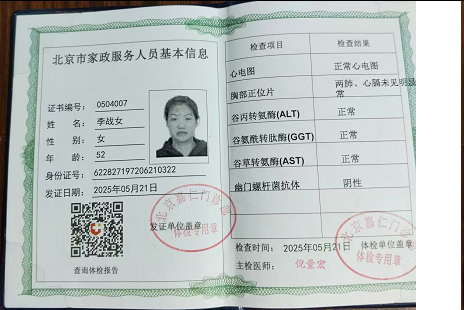 北京市家政服务人员基本信息
证书编号: 0504007
姓 名: 李战女
性 别: 女
年 龄: 52
身份证号: 622827197206210322
发证日期: 2025年05月21日
发证单位盖章
体检专用章
查询体检报告
检查项目 检查结果
心电图 正常心电图
胸部正位片 两肺、心膈未见明显
常
谷丙转氨酶(ALT) 正常
谷氨酰转肽酶(GGT) 正常
谷草转氨酶(AST) 正常
幽门螺杆菌抗体 阴性
北京嘉仁门诊部
检查时间: 2025年05月21日 体检单位盖章
体检专用章
主检医师: 倪量宏